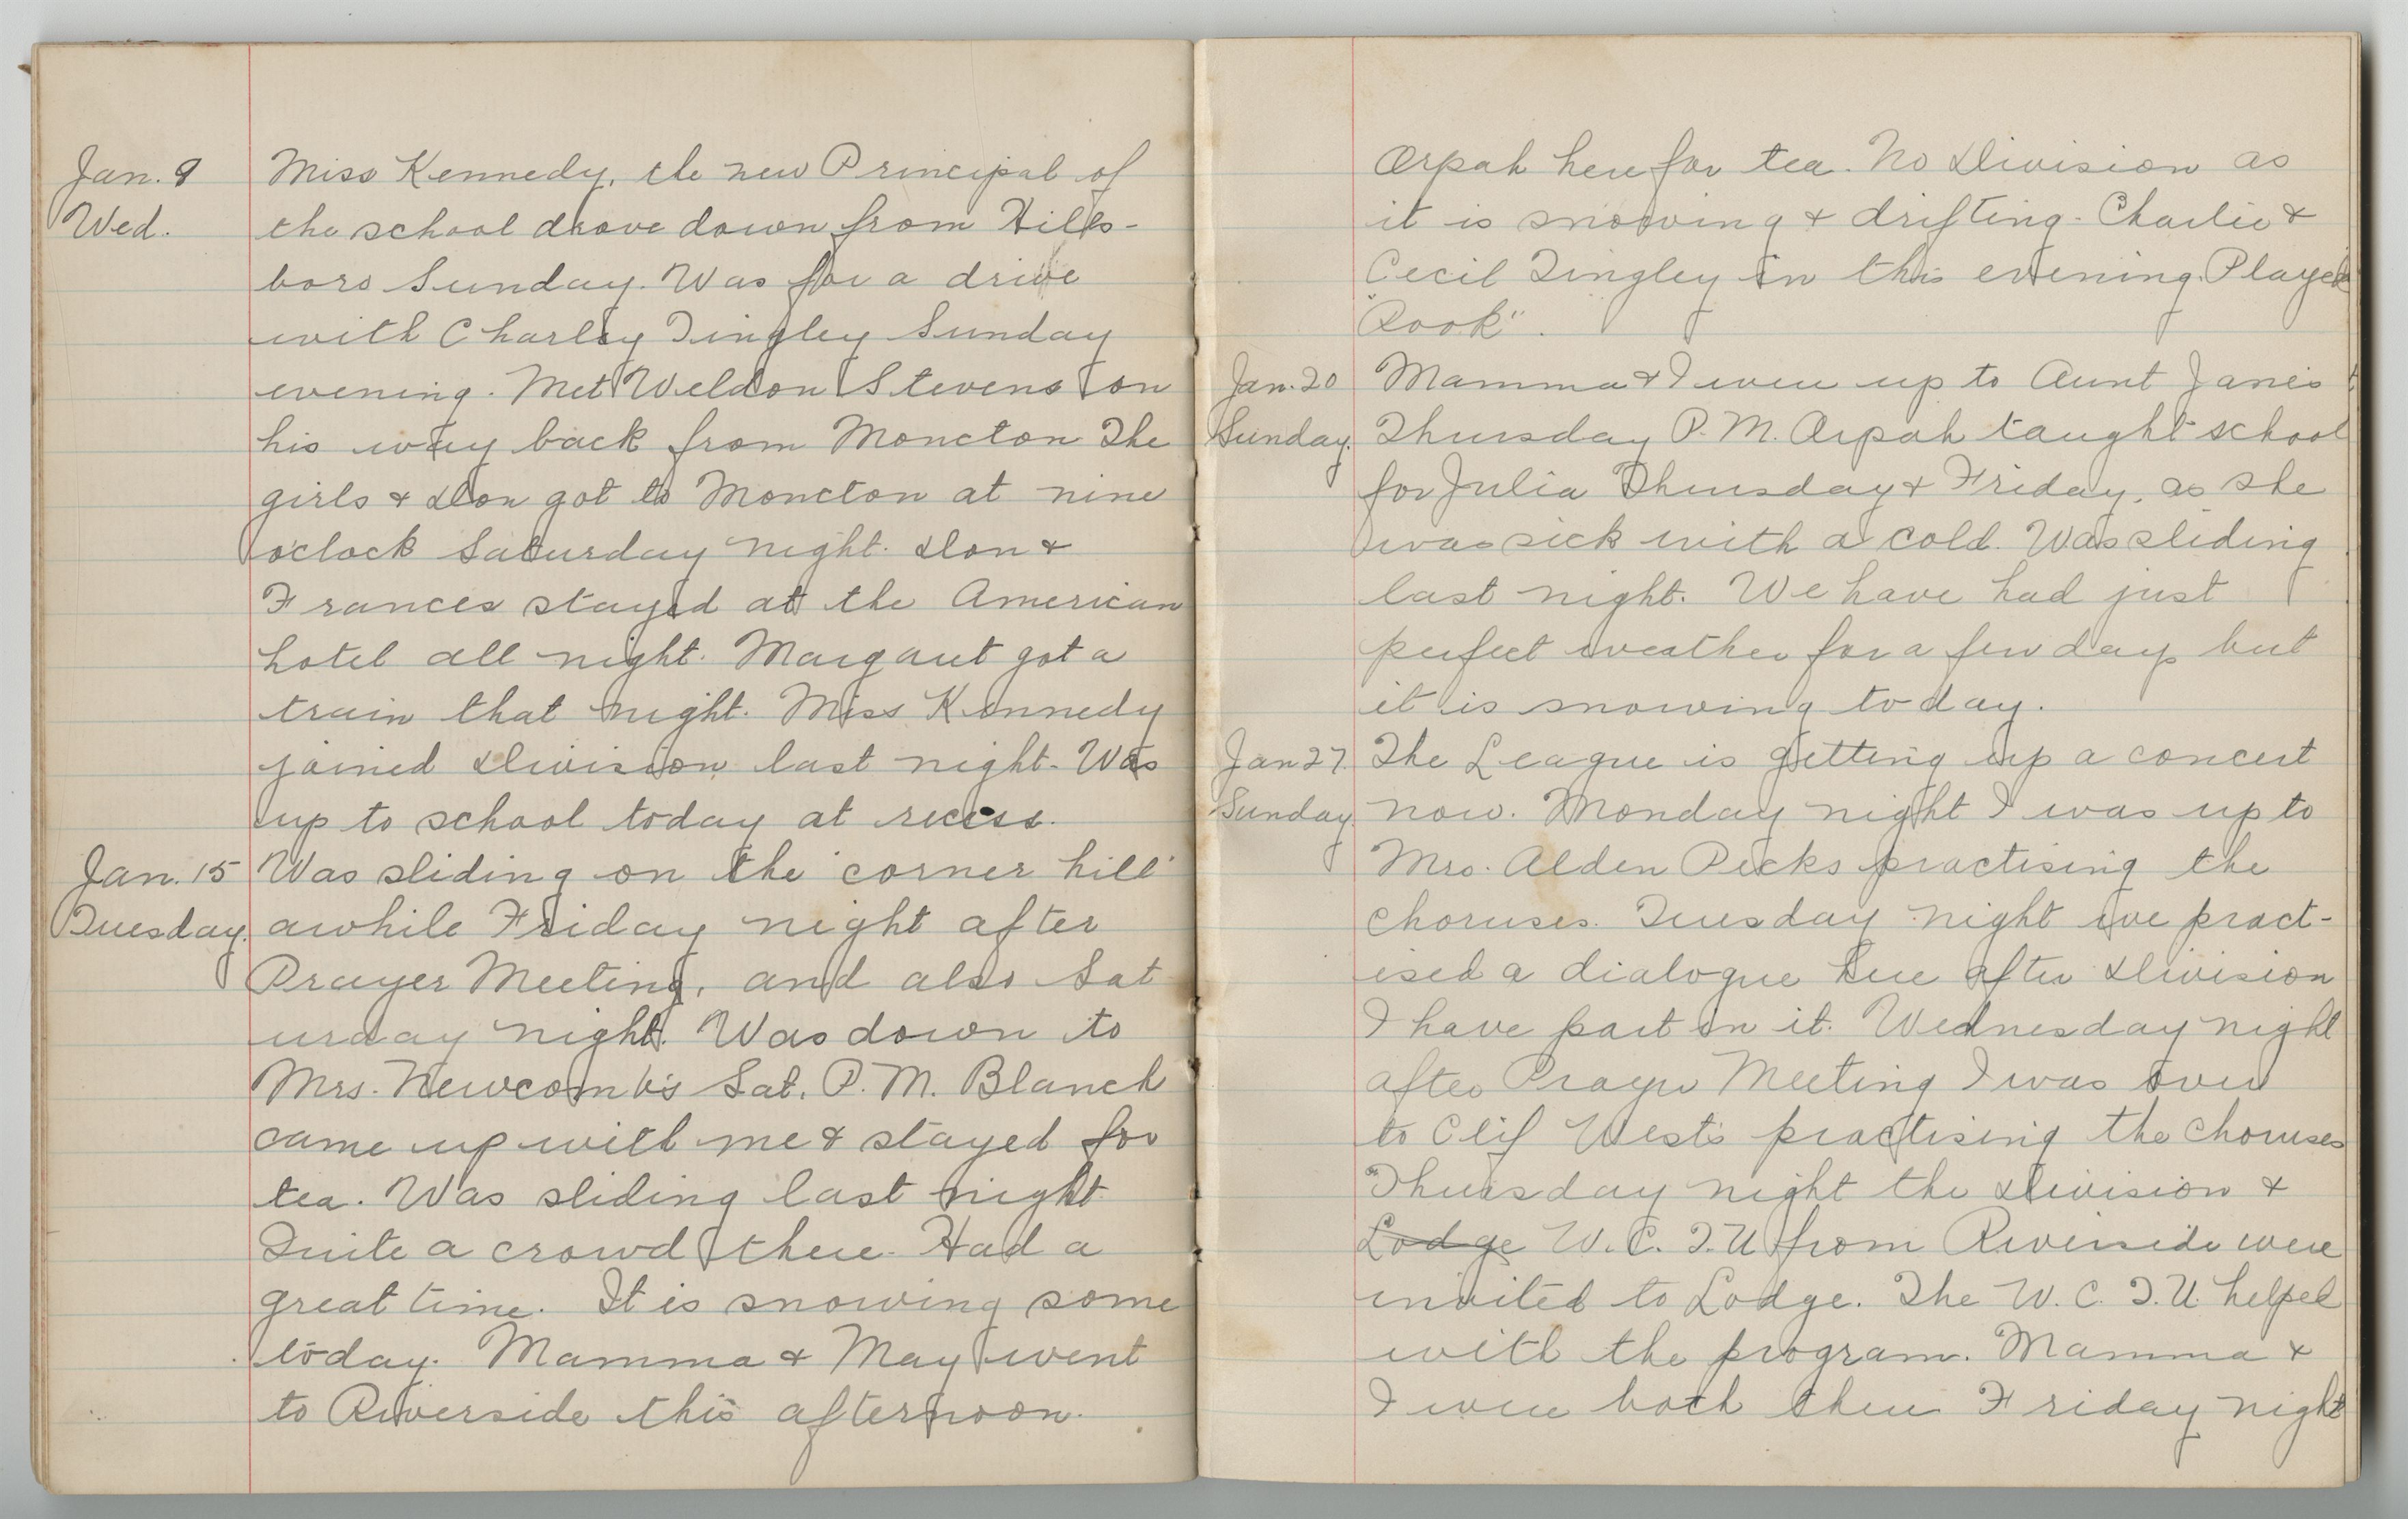 Jan. 9 Miss Kennedy, the new Principal of
Wed. the school drove down from Hills-
boro Sunday. Was for a drive
with Charley Tingley Sunday
evening. Met Weldon Stevens on
his way back from Moncton The
girls & Don got to Moncton at nine
o'clock Saturday night. Don &
Frances stayed at the American
hotel all night. Margaret got a
train that night. Miss Kennedy
joined Division last night. Was
up to school today at recess.
Jan. 15 Was sliding on the "corner hill"
Tuesday. awhile Friday night after
Prayer Meeting, and also Sat
urday night. Was down to
Mrs. Newcomb's Sat. P.M. Blanch
came up with me & stayed for
tea. Was sliding last night
Quite a crowd there. Had a
great time. It is snowing some
today. Mamma & May went
to Riverside this afternoon.
Orpah here for tea. No Division as
it is snowing & drifting. Charlie &
Cecil Tingley in this evening. Played
"Rook".
Jan. 20 Mamma & I were up to Aunt Jane's
Sunday. Thursday P.M. Orpah taught school
for Julia Thursday & Friday, as she
was sick with a cold. Was sliding
last night. We have had just
perfect weather for a few days but
it is snowing today.
Jan 27. The League is getting up a concert
Sunday. now. Monday night I was up to
Mrs. Alden Pecks practising the
choruses. Tuesday night we pract-
ised a dialogue here after Division
I have part in it. Wednesday night
after Prayer Meeting I was over
to Clif West's practising the choruses
Thursday night the Division &
Lodge W.C.T.U from Riverside were
invited to Lodge. The W.C.T.U. helped
with the program. Mamma &
I were both there Friday night